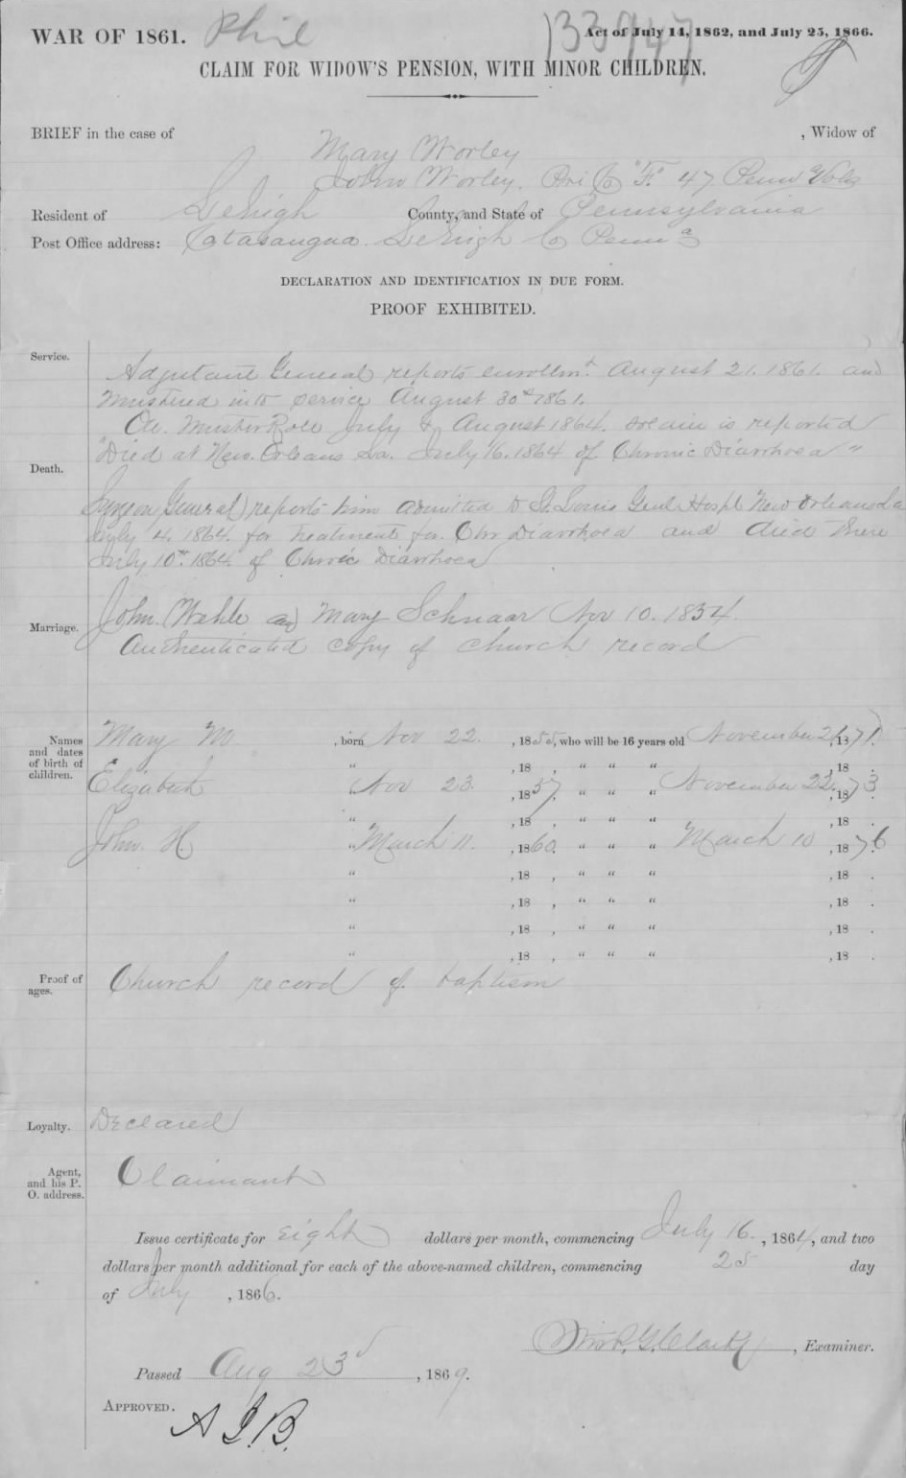 WAR OF 1861. Phil 133947 Act of July 14, 1862, and July 25, 1866.
CLAIM FOR WIDOW'S PENSION, WITH MINOR CHILDREN.
BRIEF in the case of Mary Worley, Widow of
John Worley. Pri Co "F" 47 Penn Vols
Resident of Lehigh County, and State of Pennsylvania
Post Office address: Catasauqua Lehigh Co Penna
DECLARATION AND IDENTIFICATION IN DUE FORM.
PROOF EXHIBITED.
Service.
Adjutant General reports enrollmt August 21. 1861. and
mustered into service August 30th 1861.
On Muster Role July & August 1864. is reported
Death.
"Died at New Orleans La. July 16. 1864 of Chronic Diarrhoea"
Surgeon General reports him admitted to St Louis Genl Hospl New Orleans La
July 4. 1864. for treatment for Chr Diarrhoea and died there
July 10th 1864 of Chronic Diarrhoea
Marriage.
John Wahle and Mary Schnaar Nov 10. 1854.
Authenticated copy of church record
Names and dates of birth of children.
Mary M , born Nov 22. , 1855, who will be 16 years old November 21, 1871.
" , 18 , " " " , 18 .
Elizabeth " Nov 23 , 1857, " " " November 22, 1873
" , 18 , " " " , 18 .
John. H " March 11. , 1860. " " " March 10 , 1876
" , 18 , " " " , 18 .
" , 18 , " " " , 18 .
" , 18 , " " " , 18 .
" , 18 , " " " , 18 .
Proof of ages.
Church record of baptism
Loyalty. Declared
Agent, and his P. O. address.
Claimant
Issue certificate for eight dollars per month, commencing July 16. , 1864, and two
dollars per month additional for each of the above-named children, commencing 25 day
of July , 1866.
Clark , Examiner.
Passed Aug 23d , 1869.
APPROVED.
A J.B.